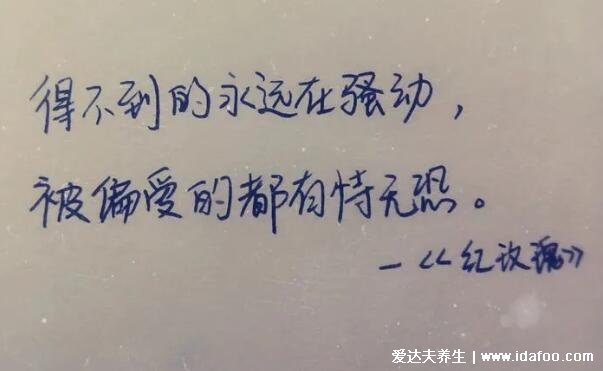 得不到的永远在骚动，
被偏受的都有恃无恐。
—《红玫瑰》
爱达夫养生｜www.idafoo.com